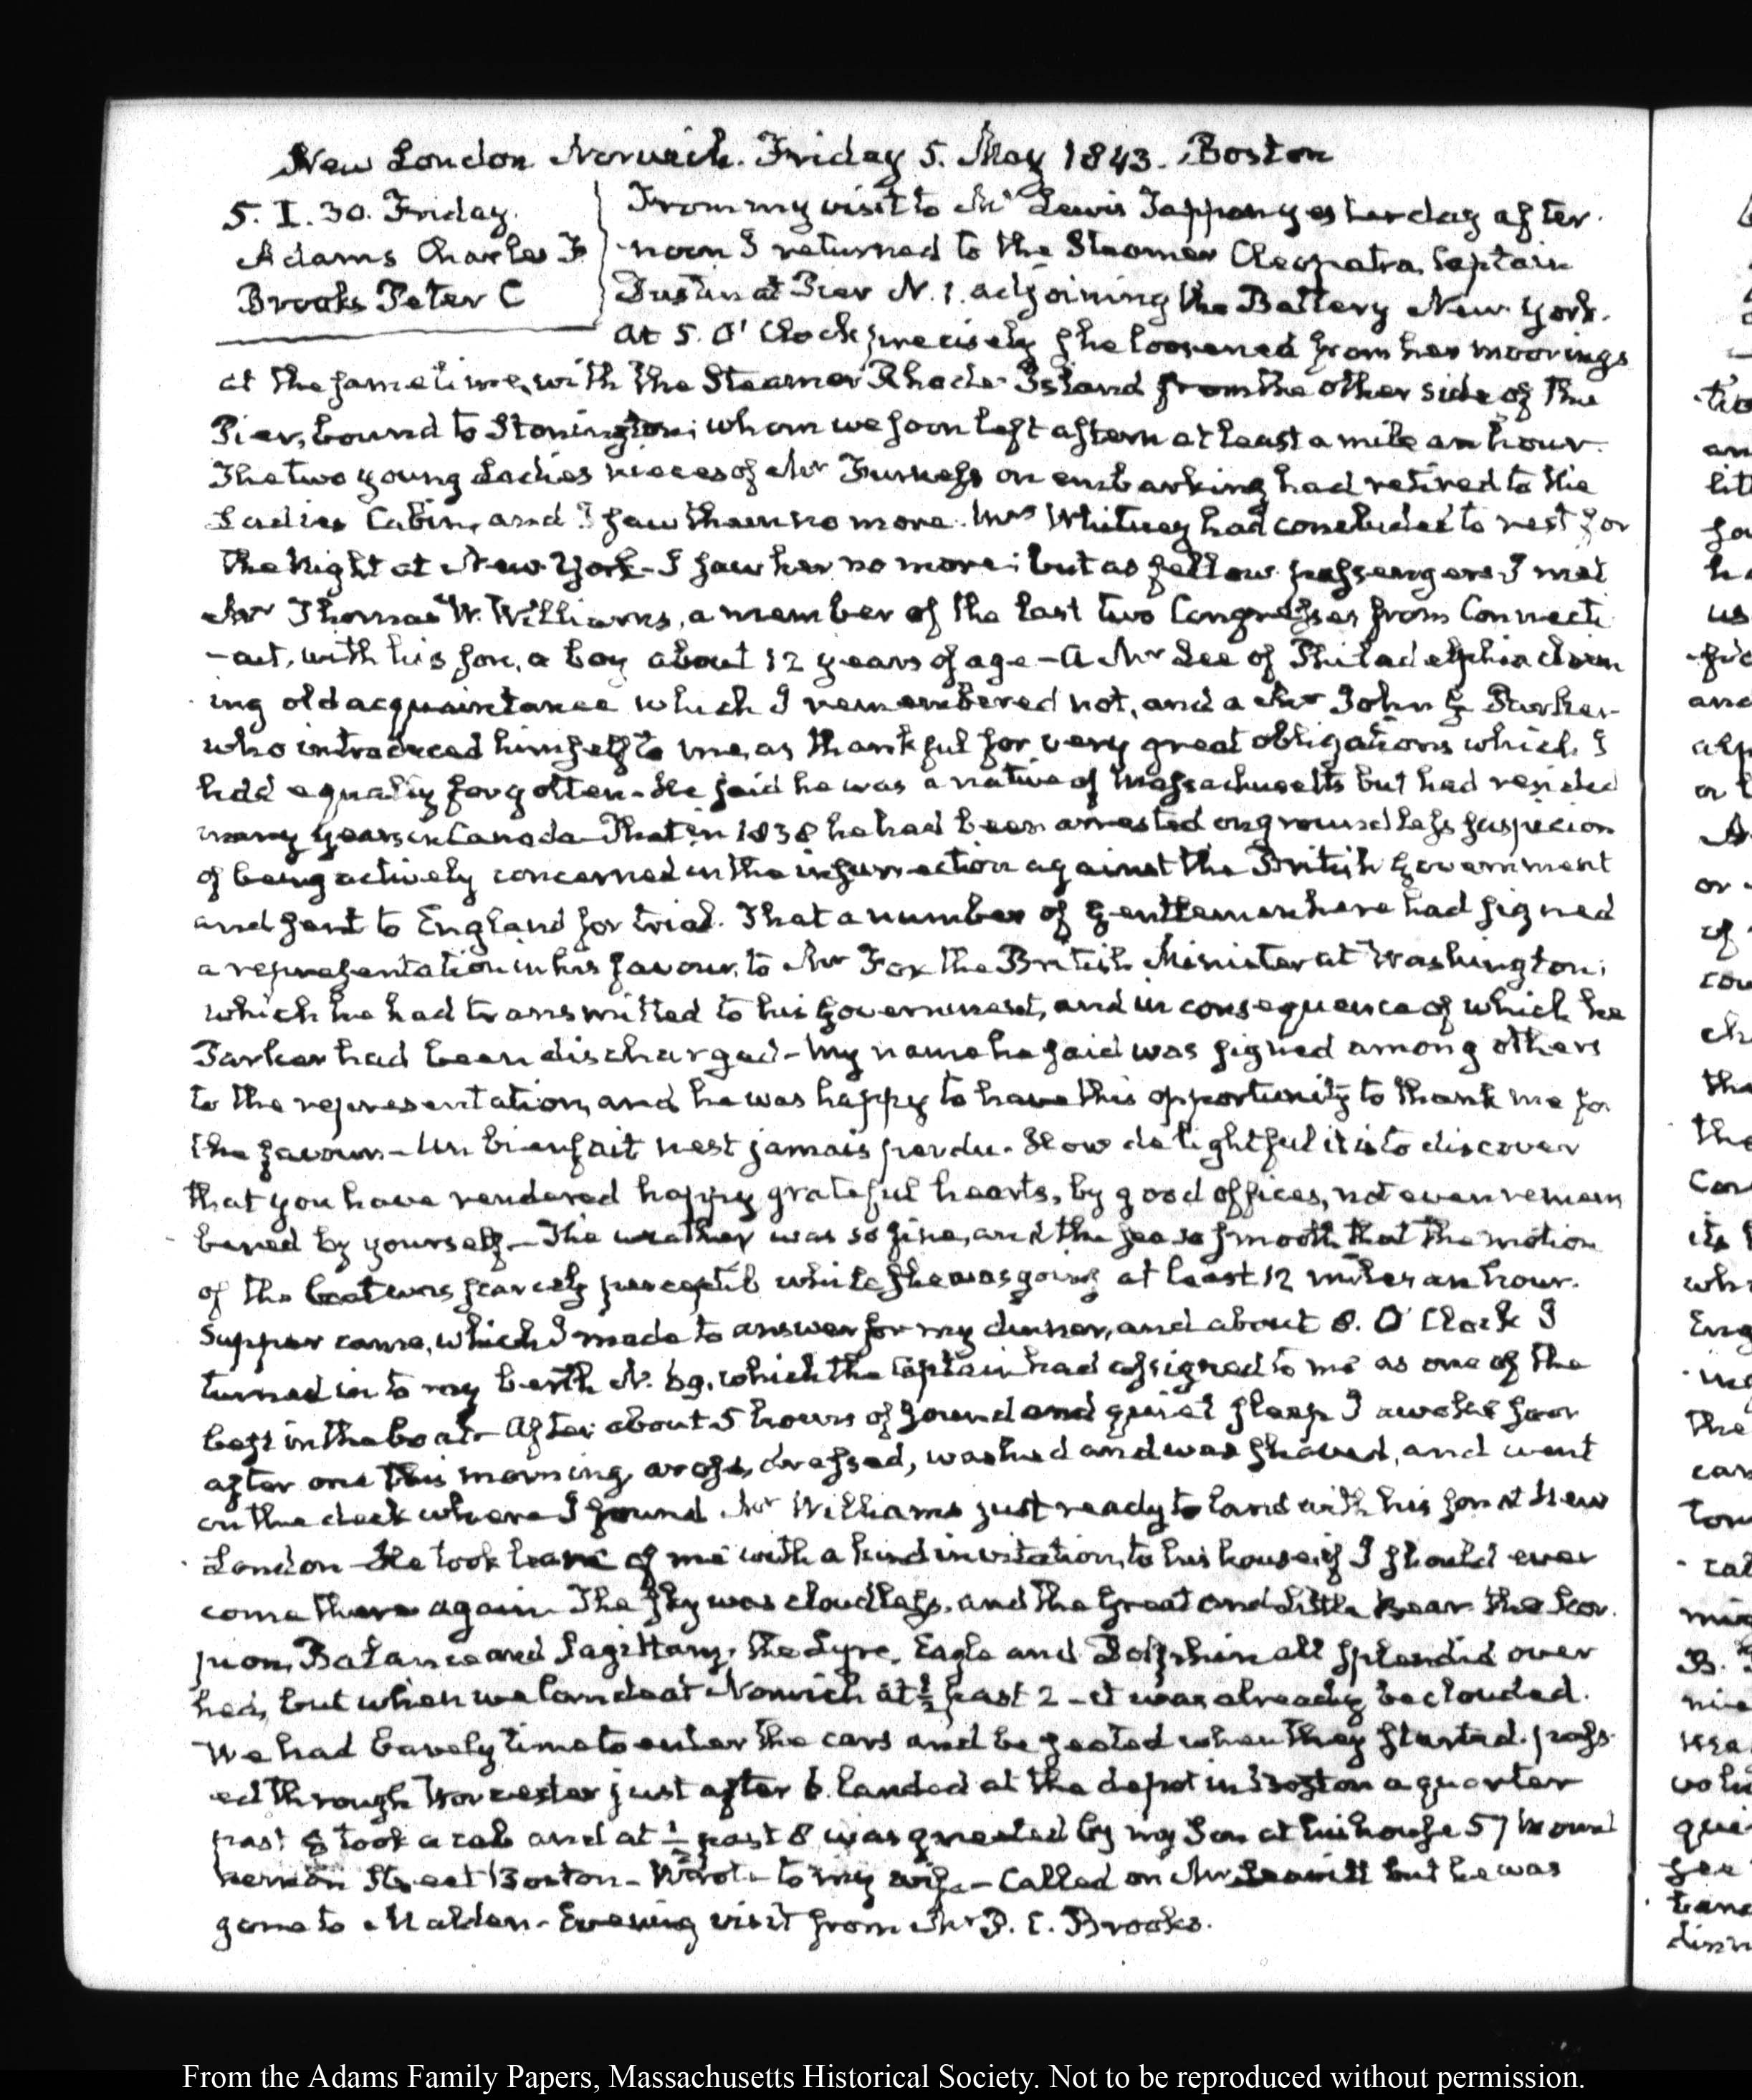 New London Norwich. Friday 5. May 1843. Boston
5. I. 30. Friday.
Adams Charles F
Brooks Peter C
From my visit to Mr Lewis Tappan yesterday after
noon I returned to the Steamer Cleopatra, Captain
Dustin at Pier N. 1. adjoining the Battery New-York.
At 5. O' Clock precisely she loosened from her moorings
at the same time, with the Steamer Rhode-Island from the other side of the
Pier, bound to Stonington; whom we soon left astern at least a mile an hour.
The two young Ladies nieces of Mr Furness on embarking had retired to the
Ladies Cabin, and I saw them no more. Mrs Whitney had concluded to rest for
the Night at New-York - I saw her no more: but as fellow passengers I met
Mr Thomas W. Williams, a member of the last two Congresses from Connecti
-cut, with his son, a boy about 12 years of age - A Mr Lee of Philadelphia claim
ing old acquaintance which I remembered not, and a Mr John G Parker
who introduced himself to me, as thankful for very great obligations which I
had equally forgotten - He said he was a native of Massachusetts but had resided
many years in Canada - That in 1838 he had been arrested on groundless suspicion
of being actively concerned in the insurrection against the British Government
and sent to England for trial. That a number of Gentlemen here had signed
a representation in his favour, to Mr Fox the British Minister at Washington;
which he had transmitted to his Government, and in consequence of which he
Parker had been discharged - My name he said was signed among others
to the representation, and he was happy to have this opportunity to thank me for
the favour - Un bienfait nest jamais perdu. How delightful it is to discover
that you have rendered happy grateful hearts, by good offices, not even remem
bered by yourself - The weather was so fine, and the sea so smooth that the motion
of the boat was scarcely perceptib while she was going at least 12 miles an hour.
Supper came, which I made to answer for my dinner, and about 8. O' Clock I
turned in to my berth N. 69. which the Captain had assigned to me as one of the
best in the boat - After about 5 hours of sound and quiet sleep I awoke soon
after one this morning, arose, dressed, washed and was shaved, and went
on the deck where I found Mr Williams just ready to land with his son at New
London - He took leave of me with a kind invitation, to his house, if I should ever
come there again. The sky was cloudless, and the Great and Little Bear the Scor
pion, Balance and Sagittary, the Lyre, Eagle and Dolphin all splendid over
hed, but when we landed at Norwich at ½ past 2 - it was already beclouded.
We had barely time to enter the cars and be seated when they started. pass
ed through Worcester just after 6. landed at the depot in Boston a quarter
past 8 took a cab and at ½ past 8 was greeted by my Son at his house 57 Mount
Vernon Street Boston - Wrote to my wife - Called on Mr but he was
gone to Malden - Evening visit from Mr P. C. Brooks.
tio
an
litt
us
and
or
of
the
the
its
Eng
the
ton
From the Adams Family Papers, Massachusetts Historical Society. Not to be reproduced without permission.